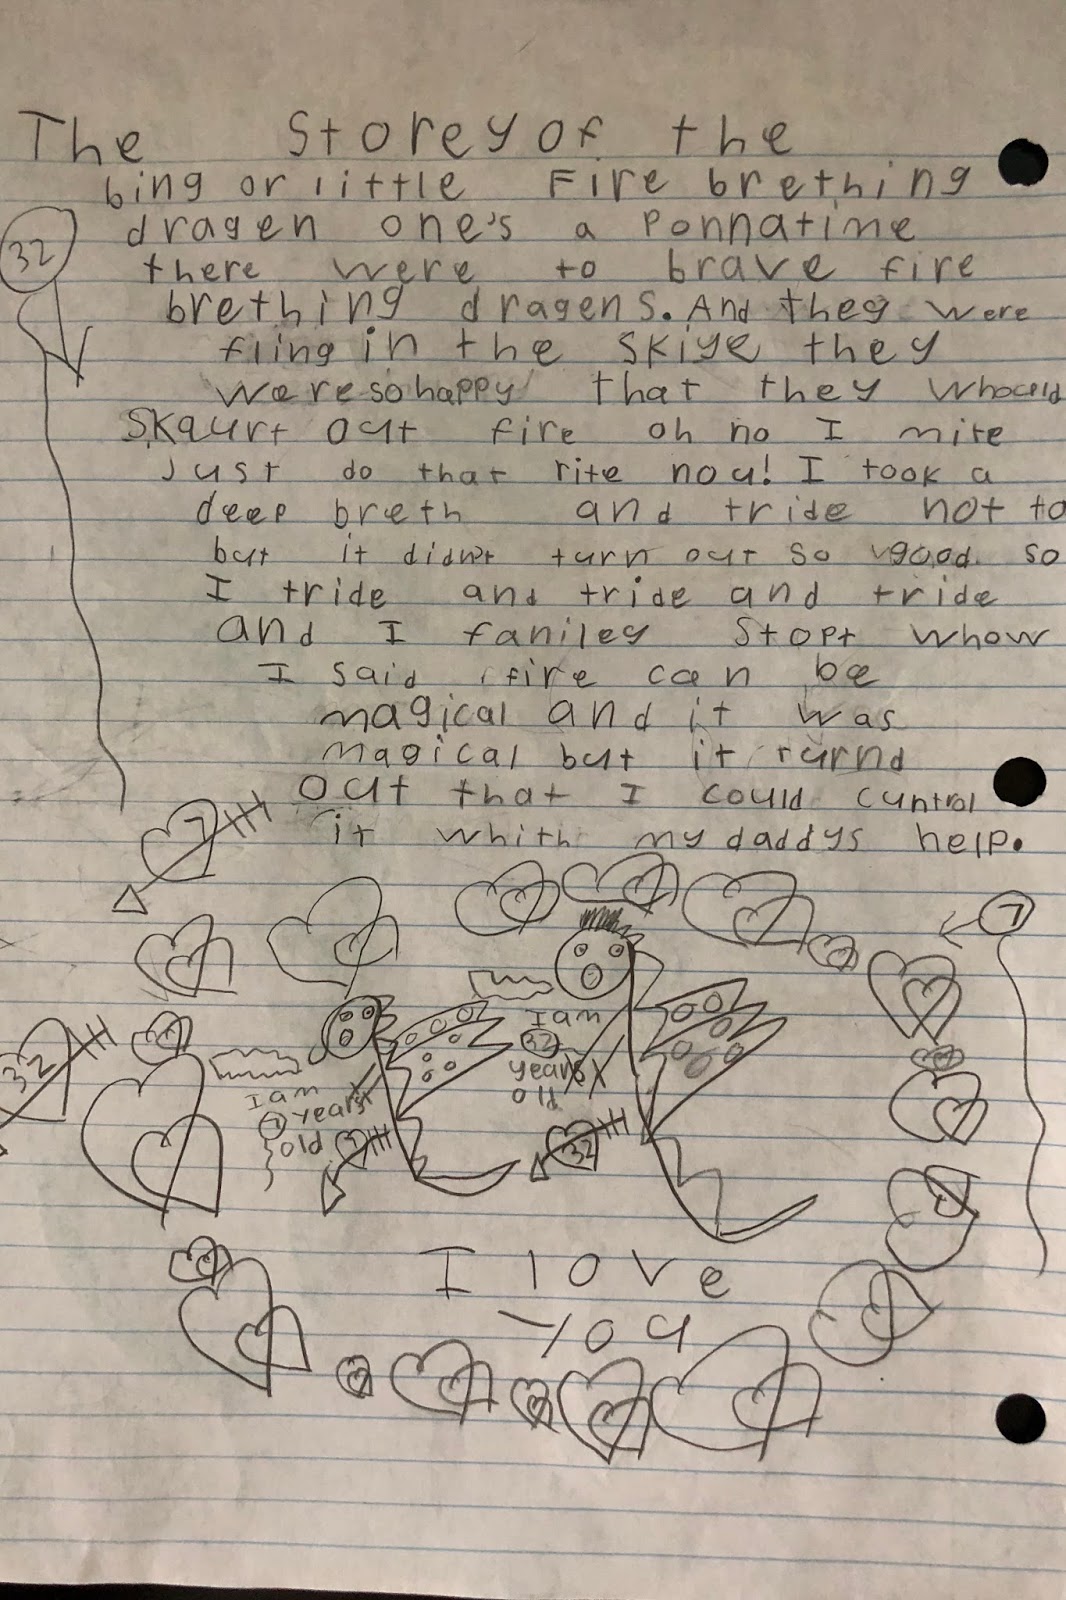 The Storey of the
bing or little Fire brething
32
dragen one's a Ponnatime
there were to brave fire
brething dragens. And they were
fling in the skiye they
were so happy that they whould
Skqurt out fire oh no I mite
Just do that rite nou! I took a
deep breth and tride not to
but it didn't turn out so good so
I tride and tride and tride
and I faniley stopt whow
I said fire can be
magical and it was
magical but it turnd
out that I could cuntrol
it whith my daddys help.
7
7
32
I am
7 years
old
7
I am
32
years
old
32
I love
you